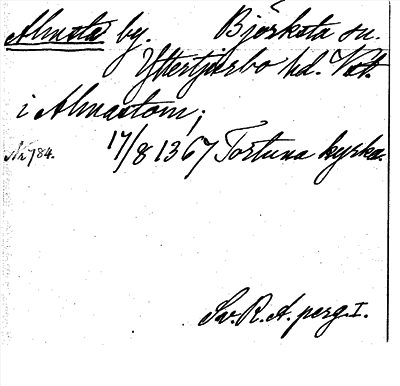 Almsta by. Björksta sn.
Yttertjurbo hd. Vstm.
i Almastom;
Nr 784. 17/8 1367 Tortuna kyrka.
Sv. R. A. perg. I.